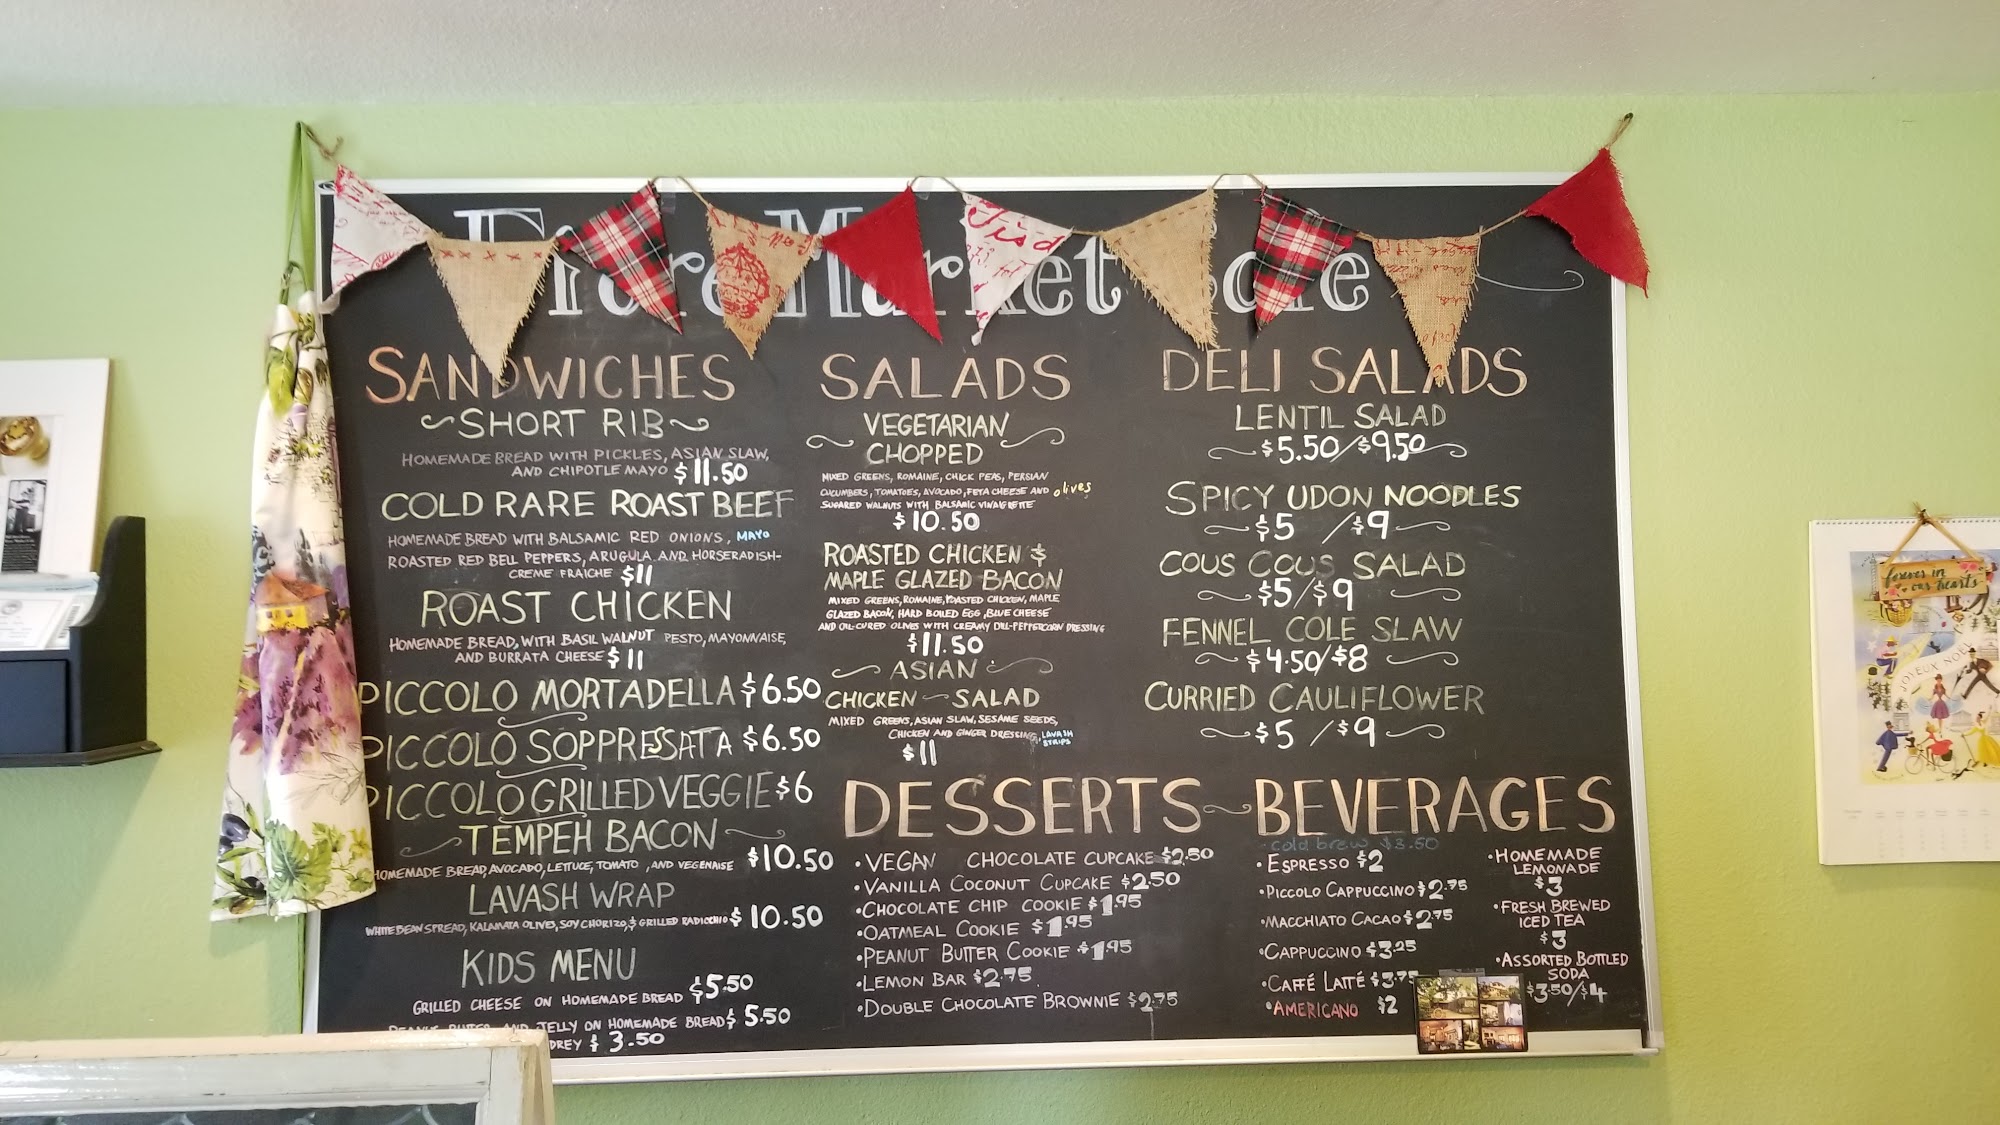 Fiore Market Cafe
SANDWICHES
SHORT RIB
HOMEMADE BREAD WITH PICKLES, ASIAN SLAW,
AND CHIPOTLE MAYO $11.50
COLD RARE ROAST BEEF
HOMEMADE BREAD WITH BALSAMIC RED ONIONS, MAYO
ROASTED RED BELL PEPPERS, ARUGULA AND HORSERADISH-
CREME FRAICHE $11
ROAST CHICKEN
HOMEMADE BREAD, WITH BASIL WALNUT PESTO, MAYONNAISE,
AND BURRATA CHEESE $11
PICCOLO MORTADELLA $6.50
PICCOLO SOPPRESSATA $6.50
PICCOLO GRILLED VEGGIE $6
TEMPEH BACON
HOMEMADE BREAD, AVOCADO, LETTUCE, TOMATO, AND VEGENAISE $10.50
LAVASH WRAP
WHITE BEAN SPREAD, KALAMATA OLIVES, SOY CHORIZO, & GRILLED RADICCHIO $10.50
KIDS MENU
GRILLED CHEESE ON HOMEMADE BREAD $5.50
PEANUT BUTTER AND JELLY ON HOMEMADE BREAD $5.50
DREY $3.50
SALADS
VEGETARIAN
CHOPPED
MIXED GREENS, ROMAINE, CHICK PEAS, PERSIAN
CUCUMBERS, TOMATOES, AVOCADO, FETA CHEESE AND olives
SUGARED WALNUTS WITH BALSAMIC VINAIGRETTE
$10.50
ROASTED CHICKEN &
MAPLE GLAZED BACON
MIXED GREENS, ROMAINE, ROASTED CHICKEN, MAPLE
GLAZED BACON, HARD BOILED EGG, BLUE CHEESE
AND OIL-CURED OLIVES WITH CREAMY DILL-PEPPERCORN DRESSING
$11.50
ASIAN
CHICKEN SALAD
MIXED GREENS, ASIAN SLAW, SESAME SEEDS,
CHICKEN AND GINGER DRESSING, LAVASH STRIPS
$11
DELI SALADS
LENTIL SALAD
$5.50/$9.50
SPICY UDON NOODLES
$5/$9
COUS COUS SALAD
$5/$9
FENNEL COLE SLAW
$4.50/$8
CURRIED CAULIFLOWER
$5/$9
DESSERTS
•VEGAN CHOCOLATE CUPCAKE $2.50
•VANILLA COCONUT CUPCAKE $2.50
•CHOCOLATE CHIP COOKIE $1.95
•OATMEAL COOKIE $1.95
•PEANUT BUTTER COOKIE $1.95
•LEMON BAR $2.75
•DOUBLE CHOCOLATE BROWNIE $2.75
BEVERAGES
•cold brew $3.50
•ESPRESSO $2
•PICCOLO CAPPUCCINO $2.75
•MACCHIATO CACAO $2.75
•CAPPUCCINO $3.25
•CAFFÉ LATTÉ $3.75
•AMERICANO $2
•HOMEMADE
LEMONADE
$3
•FRESH BREWED
ICED TEA
$3
•ASSORTED BOTTLED
SODA
$3.50/$4
forever in
our hearts
JOYEUX NOËL